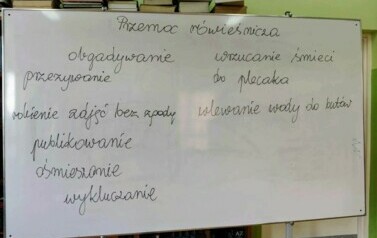 Przemoc rówieśnicza
obgadywanie
przezywanie
robienie zdjęć bez zgody
publikowanie
ośmieszanie
wykluczanie
wrzucanie śmieci
do plecaka
wlewanie wody do butów